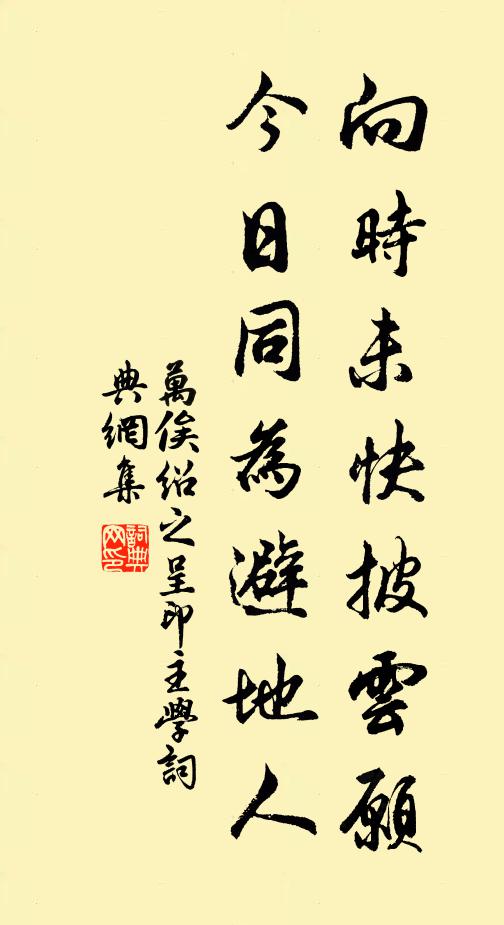 向時未快披雲願
今日同為避地人
萬俟绍之呈印主學詞
典網集
詞典
网印